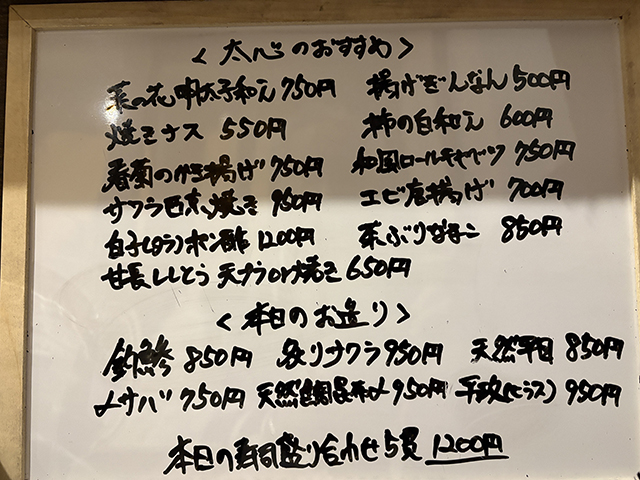 <太心のおすすめ>
菜の花明太子和え 750円 揚げぎんなん 500円
焼きナス 550円 柿の白和え 600円
春菊のかき揚げ 750円 和風ロールキャベツ 750円
サワラ西京焼き 950円 エビ唐揚げ 700円
白子(タラ)ポン酢 1200円 茶ぶりなまこ 850円
甘長ししとう 天プラor焼き 650円
<本日のお造り>
釣鯵 850円 炙りサワラ 950円 天然平目 850円
〆サバ 750円 天然鯛昆布〆 950円 平政(ヒラス) 950円
本日の寿司盛り合わせ5貫 1200円